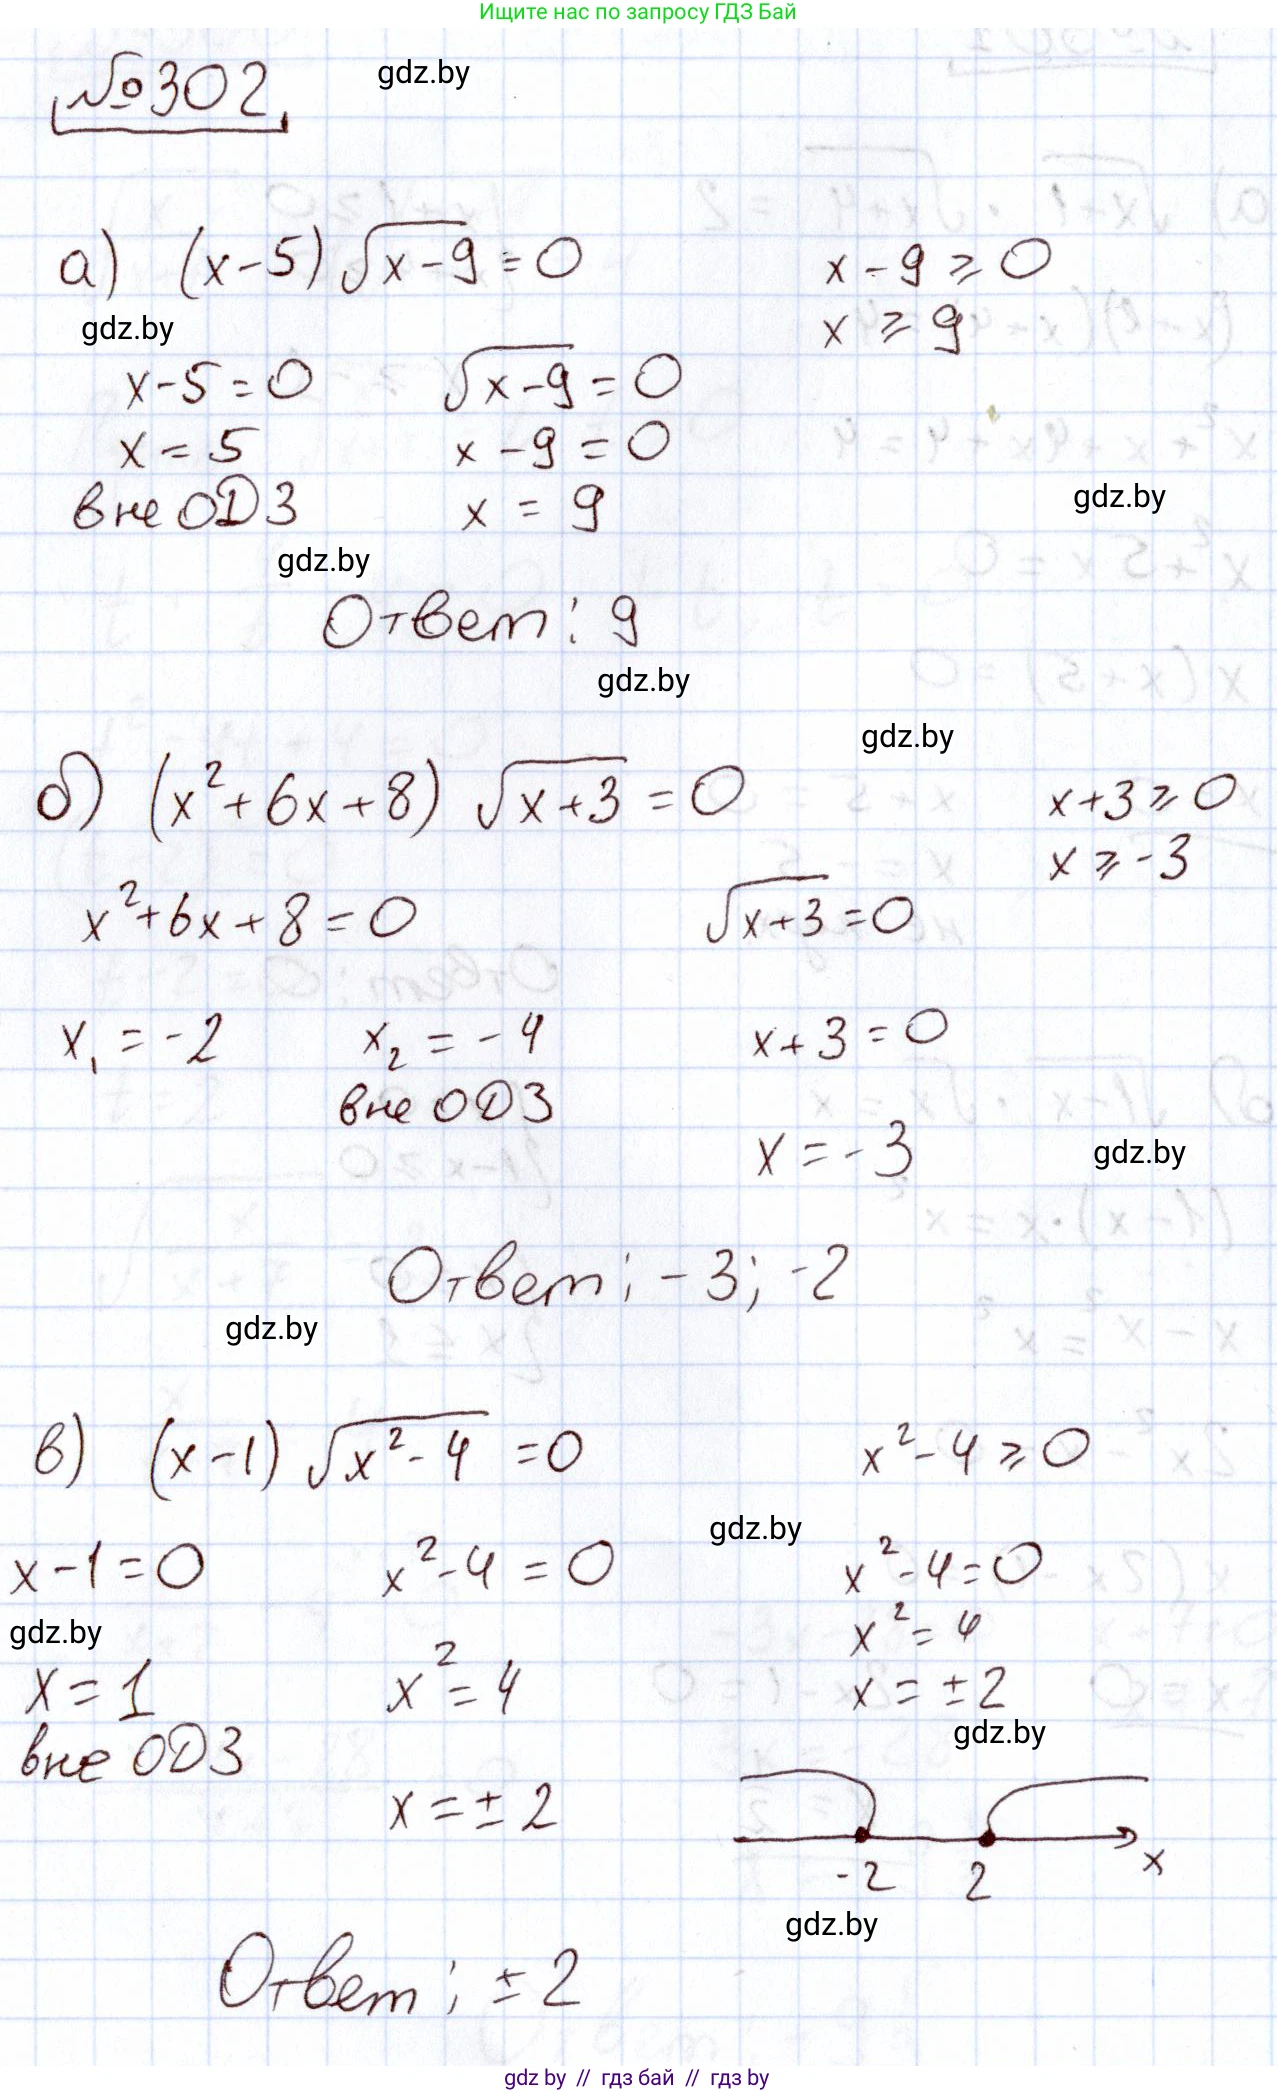 Ищите нас по запросу ГДЗ Бай
№302
gdz.by
а) (x-5)√(x-9) = 0    x-9 ≥ 0
gdz.by    x ≥ 9
x-5=0    √(x-9) = 0
x = 5    x-9 = 0
gdz.by
вне ОДЗ    x = 9
gdz.by
Ответ: 9
gdz.by
gdz.by
б) (x²+6x+8) √(x+3) = 0    x+3 ≥ 0
x ≥ -3
x²+6x+8=0    √(x+3) = 0
x₁ = -2    x₂ = -4    x+3=0
вне ОДЗ
x = -3    gdz.by
Ответ: -3; -2
gdz.by
в) (x-1) √(x²-4) = 0    x²-4 ≥ 0
gdz.by
x-1=0    x²-4 = 0    x²-4=0
gdz.by    x² = 4
x = 1    x² = 4    x = ±2
gdz.by
вне ОДЗ
x = ±2
-2    2    x
gdz.by
Ответ: ±2
gdz.by // гдз бай // гдз by